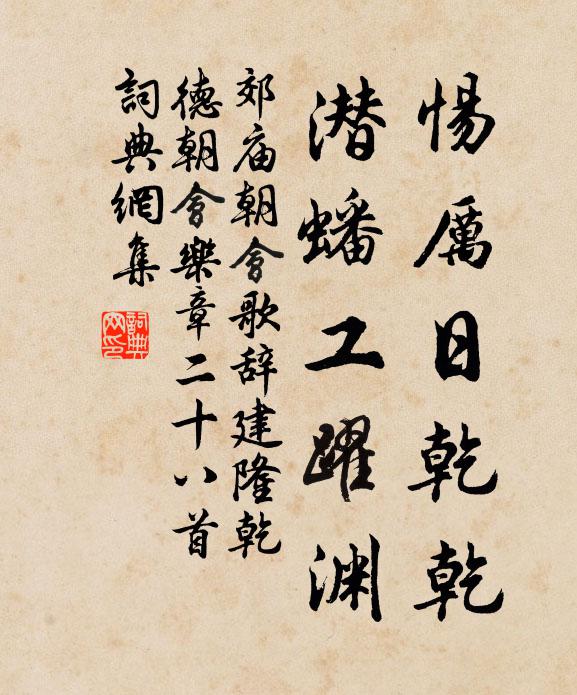 惕厲日乾乾
潛蟠工躍淵
郊庙朝會歌辞建隆乾
德朝會樂章二十八首
詞典網集
詞典
网印